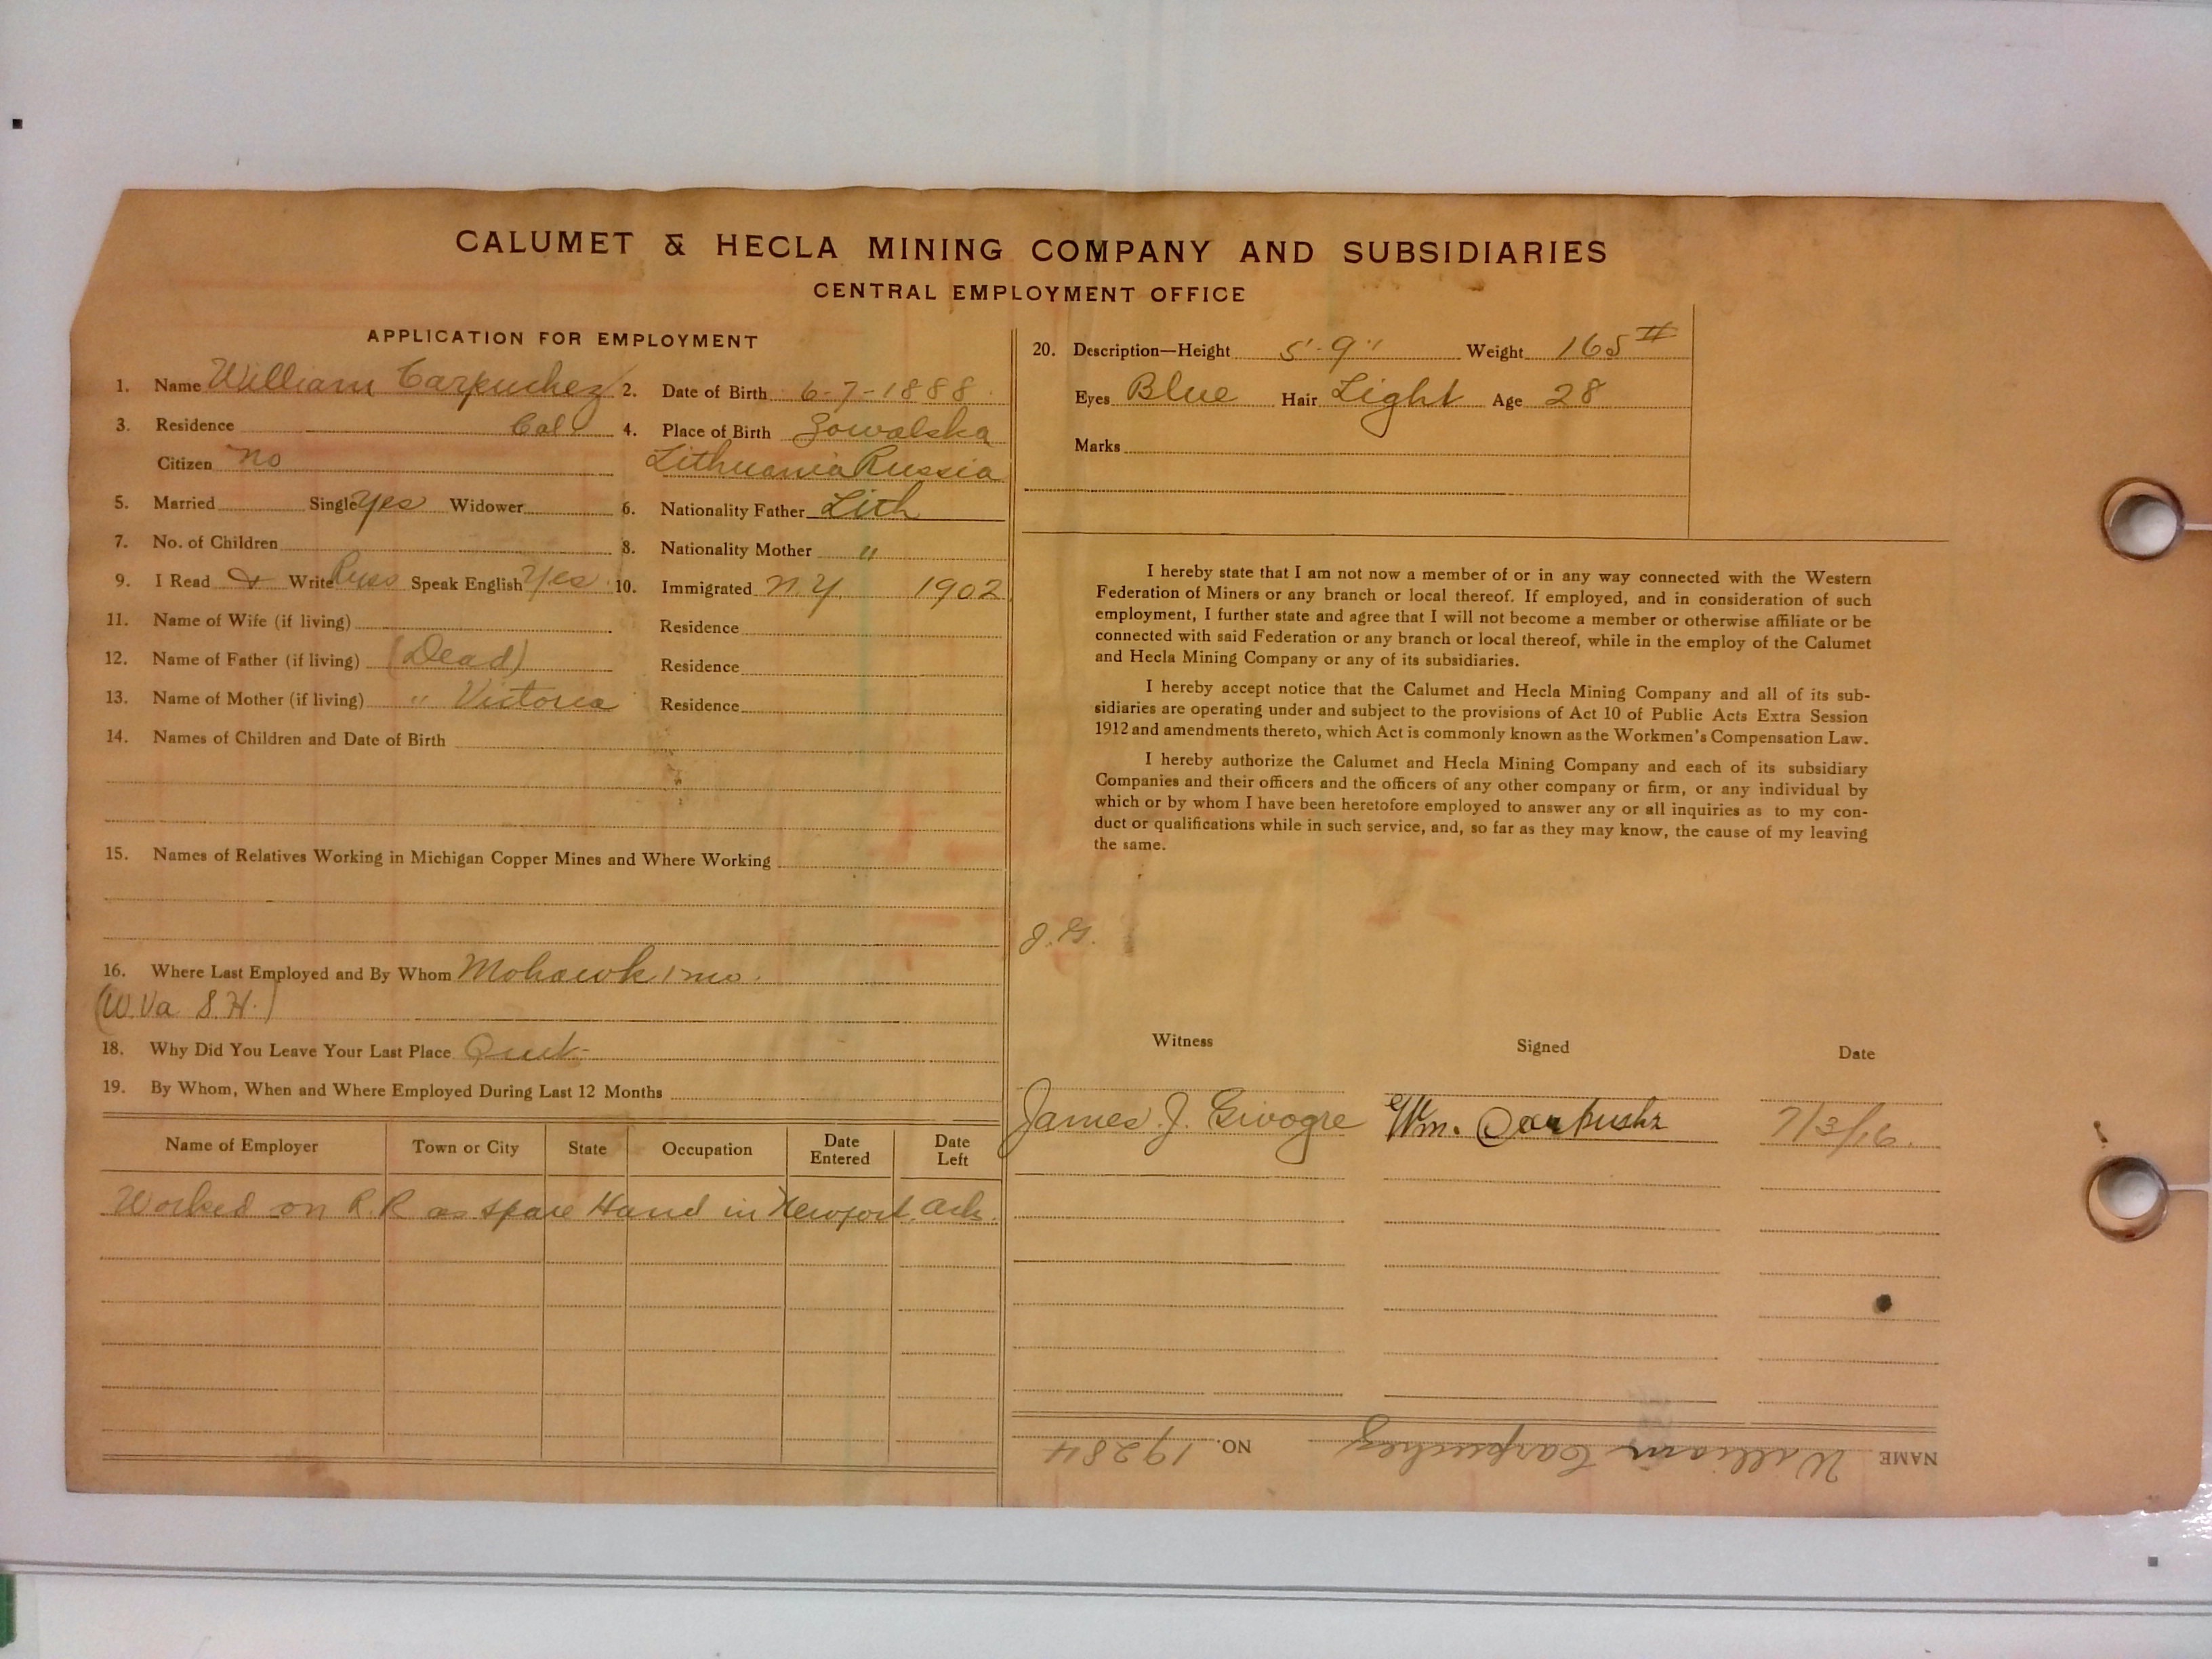 CALUMET & HECLA MINING COMPANY AND SUBSIDIARIES
CENTRAL EMPLOYMENT OFFICE
APPLICATION FOR EMPLOYMENT
1. Name William Carpuchez 2. Date of Birth 6-7-1888
3. Residence Cal. 4. Place of Birth Sowalska
Citizen no Lithuania Russia
5. Married Single Yes Widower 6. Nationality Father Lith
7. No. of Children 8. Nationality Mother "
9. I Read & Write Russ Speak English Yes 10. Immigrated N.Y. 1902
11. Name of Wife (if living) Residence
12. Name of Father (if living) (Dead) Residence
13. Name of Mother (if living) " Victoria Residence
14. Names of Children and Date of Birth
15. Names of Relatives Working in Michigan Copper Mines and Where Working
16. Where Last Employed and By Whom Mohawk 1 mo.
(W.Va S.H.)
18. Why Did You Leave Your Last Place Quit
19. By Whom, When and Where Employed During Last 12 Months
Name of Employer Town or City State Occupation Date Entered Date Left
Worked on R.R as spare Hand in Newport, Ark.
20. Description—Height 5'-9" Weight 165 #
Eyes Blue Hair Light Age 28
Marks
I hereby state that I am not now a member of or in any way connected with the Western
Federation of Miners or any branch or local thereof. If employed, and in consideration of such
employment, I further state and agree that I will not become a member or otherwise affiliate or be
connected with said Federation or any branch or local thereof, while in the employ of the Calumet
and Hecla Mining Company or any of its subsidiaries.
I hereby accept notice that the Calumet and Hecla Mining Company and all of its sub-
sidiaries are operating under and subject to the provisions of Act 10 of Public Acts Extra Session
1912 and amendments thereto, which Act is commonly known as the Workmen's Compensation Law.
I hereby authorize the Calumet and Hecla Mining Company and each of its subsidiary
Companies and their officers and the officers of any other company or firm, or any individual by
which or by whom I have been heretofore employed to answer any or all inquiries as to my con-
duct or qualifications while in such service, and, so far as they may know, the cause of my leaving
the same.
J.G.
Witness Signed Date
James J. Givogre Wm. 7/3/16.
NAME William Carpuchez NO. 19284